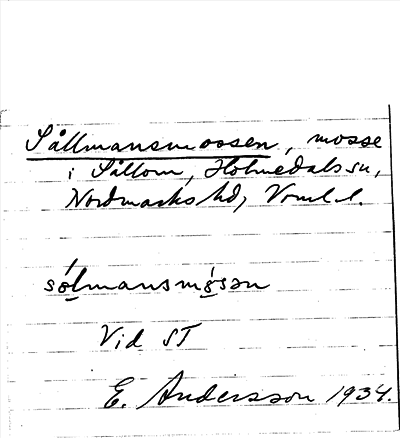 Sållmansmossen, mosse
i Sållom, Holmedals sn,
Nordmarks hd, Vrml. l.
sǫ́lmansmǫ̀sən
Vid ST
E. Andersson 1934.